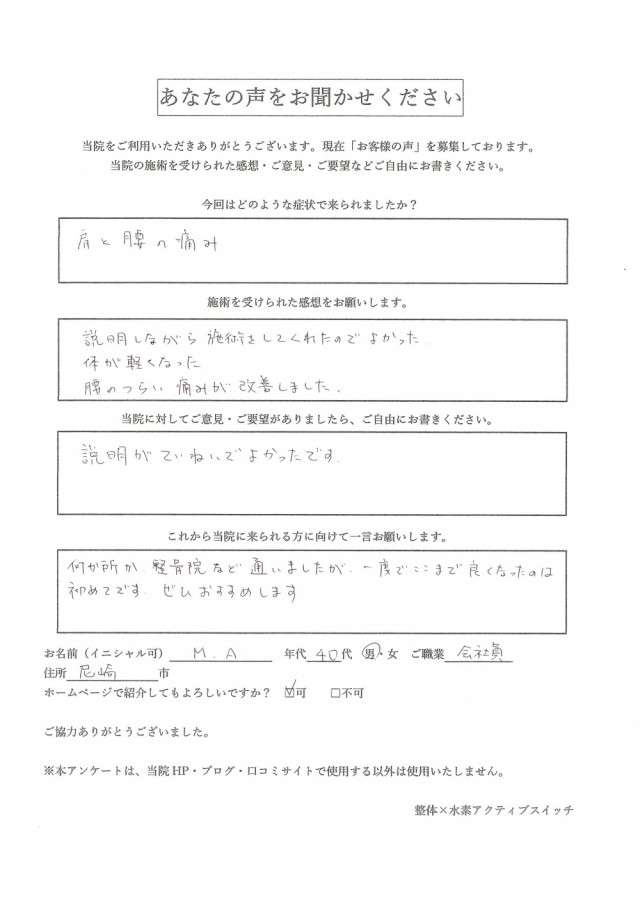 あなたの声をお聞かせください
当院をご利用いただきありがとうございます。現在「お客様の声」を募集しております。
当院の施術を受けられた感想・ご意見・ご要望などご自由にお書きください。
今回はどのような症状で来られましたか？
肩と腰の痛み
施術を受けられた感想をお願いします。
説明しながら施術をしてくれたのでよかった
体が軽くなった
腰のつらい痛みが改善しました.
当院に対してご意見・ご要望がありましたら、ご自由にお書きください。
説明がていねいでよかったです.
これから当院に来られる方に向けて一言お願いします。
何か所か.整骨院など通いましたが.一度でここまで良くなったのは
初めてです.ぜひおすすめします
お名前（イニシャル可） M.A 年代 40代 男・女 ご職業 会社員
住所 尼崎 市
ホームページで紹介してもよろしいですか？ ☑可 □不可
ご協力ありがとうございました。
※本アンケートは、当院HP・ブログ・口コミサイトで使用する以外は使用いたしません。
整体×水素アクティブスイッチ